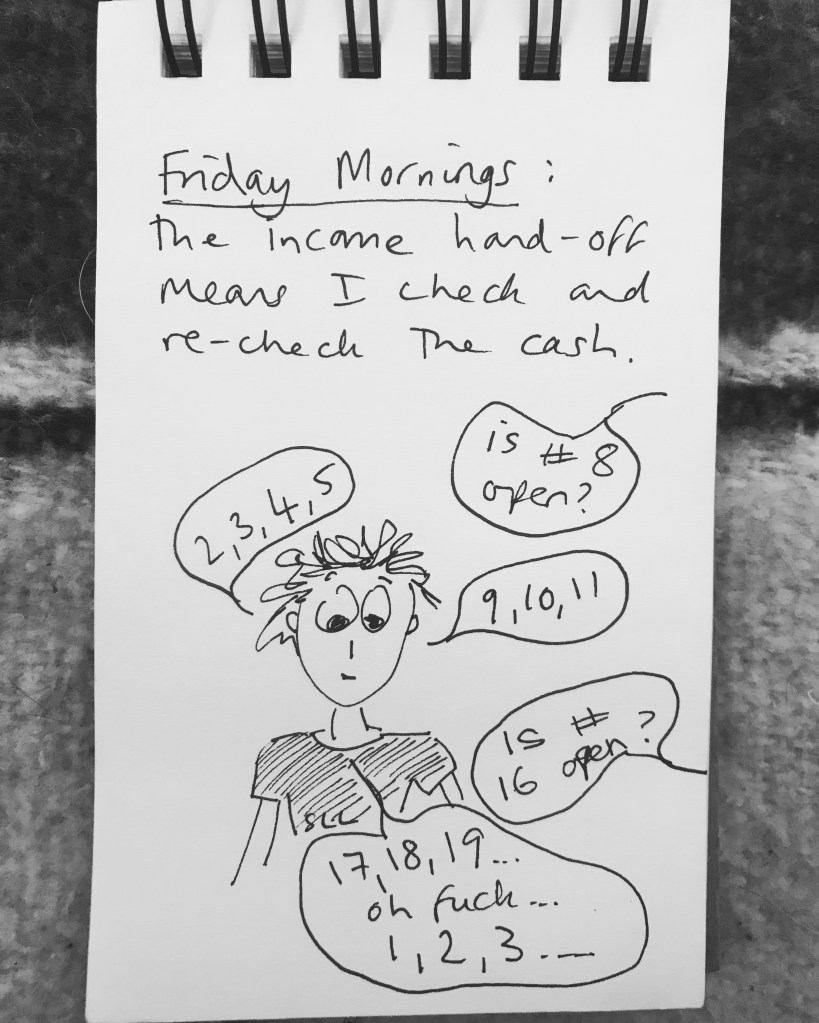 Friday Mornings:
The income hand-off
means I check and
re-check The cash.
2,3,4,5
is # 8
open?
9,10,11
is #
16 open?
SLC
17,18,19...
oh fuck...
1,2,3....